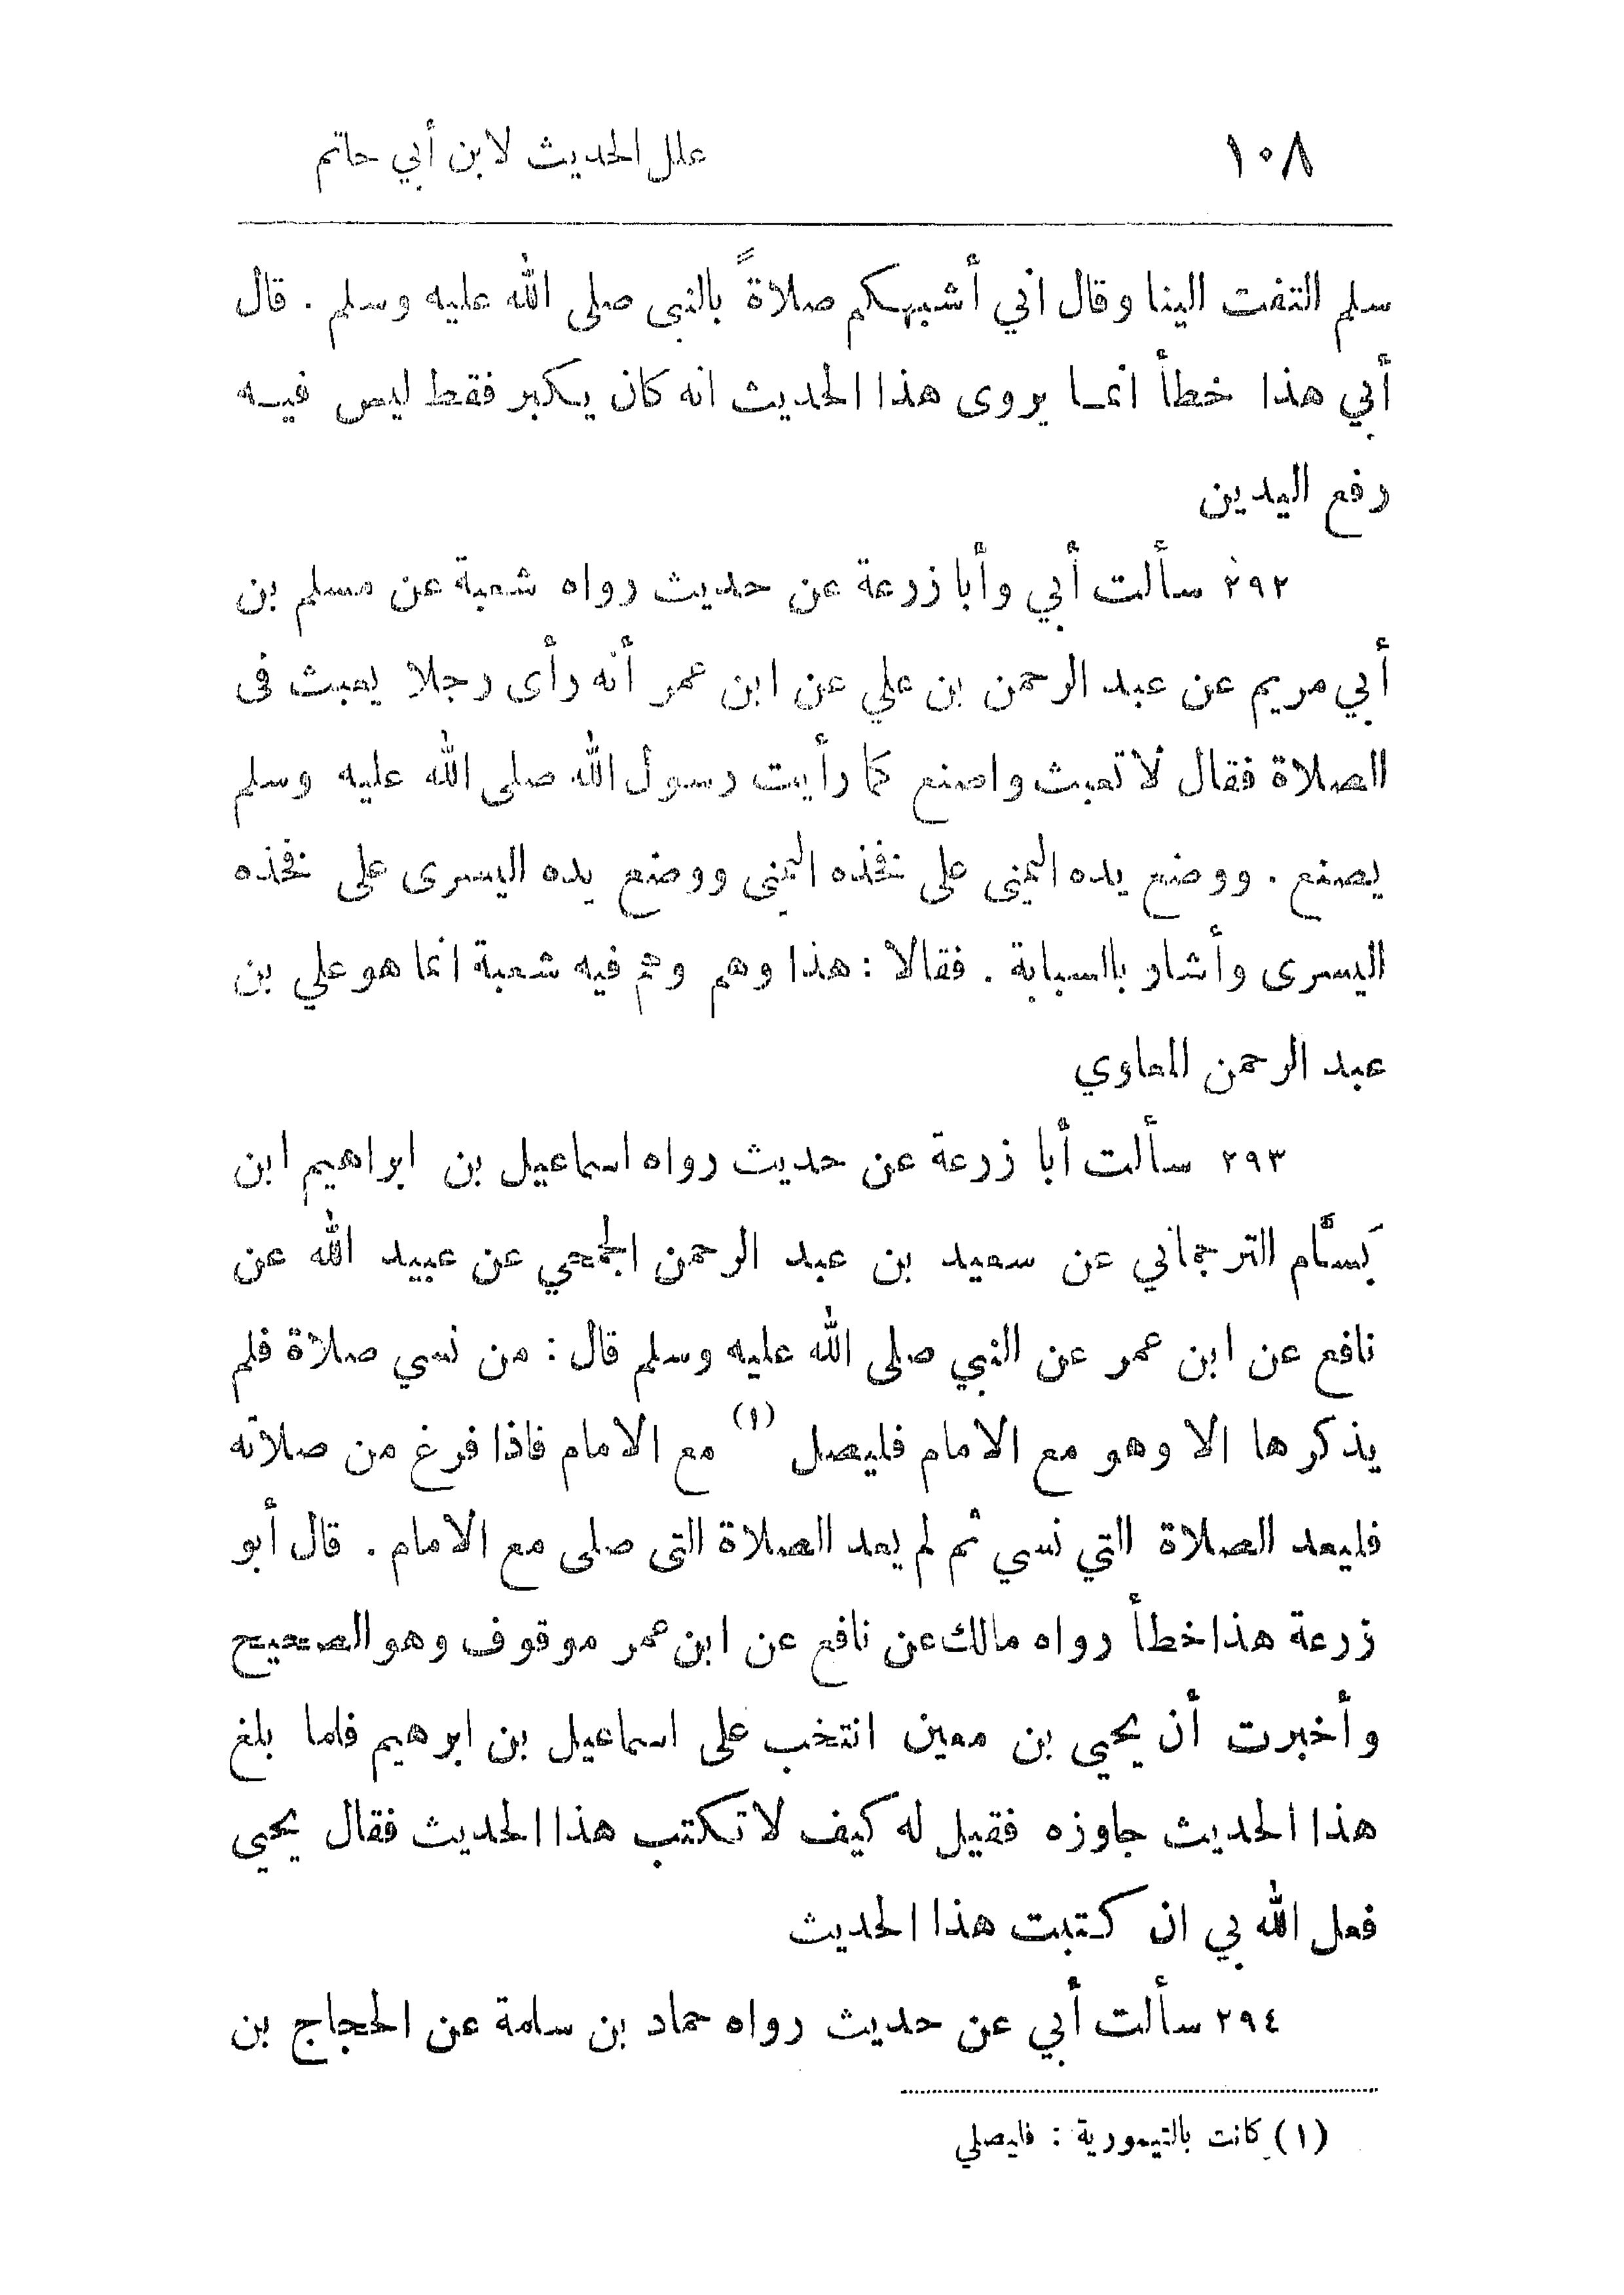 ١٠٨ علل الحديث لابن أبي حاتم
سلم التفت الينا وقال اني أشبهكم صلاةً بالنبى صلى الله عليه وسلم . قال
أبي هذا خطأ انما يروى هذا الحديث انه كان يكبر فقط ليس فيه
رفع اليدين
٢٩٢ سألت أبي وأبا زرعة عن حديث رواه شعبة عن مسلم بن
أبي مريم عن عبد الرحمن بن علي عن ابن عمر أنه رأى رجلا يعبث فى
الصلاة فقال لا تعبث واصنع كما رأيت رسول الله صلى الله عليه وسلم
يصنع . ووضع يده اليمنى على فخذه اليمنى ووضع يده اليسرى على فخذه
اليسرى وأشار بالسبابة . فقالا : هذا وهم وهم فيه شعبة انما هو علي بن
عبد الرحمن المعاوي
٢٩٣ سألت أبا زرعة عن حديث رواه اسماعيل بن ابراهيم ابن
بَسَّام الترجماني عن سعيد بن عبد الرحمن الجمحي عن عبيد الله عن
نافع عن ابن عمر عن النبي صلى الله عليه وسلم قال : من نسي صلاة فلم
يذكرها الا وهو مع الامام فليصل (١) مع الامام فاذا فرغ من صلاته
فليعد الصلاة التي نسي ثم لم يعد الصلاة التى صلى مع الامام . قال أبو
زرعة هذا خطأ رواه مالك عن نافع عن ابن عمر موقوف وهو الصحيح
وأخبرت أن يحيى بن معين انتخب على اسماعيل بن ابرهيم فلما بلغ
هذا الحديث جاوزه فقيل له كيف لا تكتب هذا الحديث فقال يحيى
فعل الله بي ان كتبت هذا الحديث
٢٩٤ سألت أبي عن حديث رواه حماد بن سلمة عن الحجاج بن
(١) كانت بالتيمورية : فليصلي